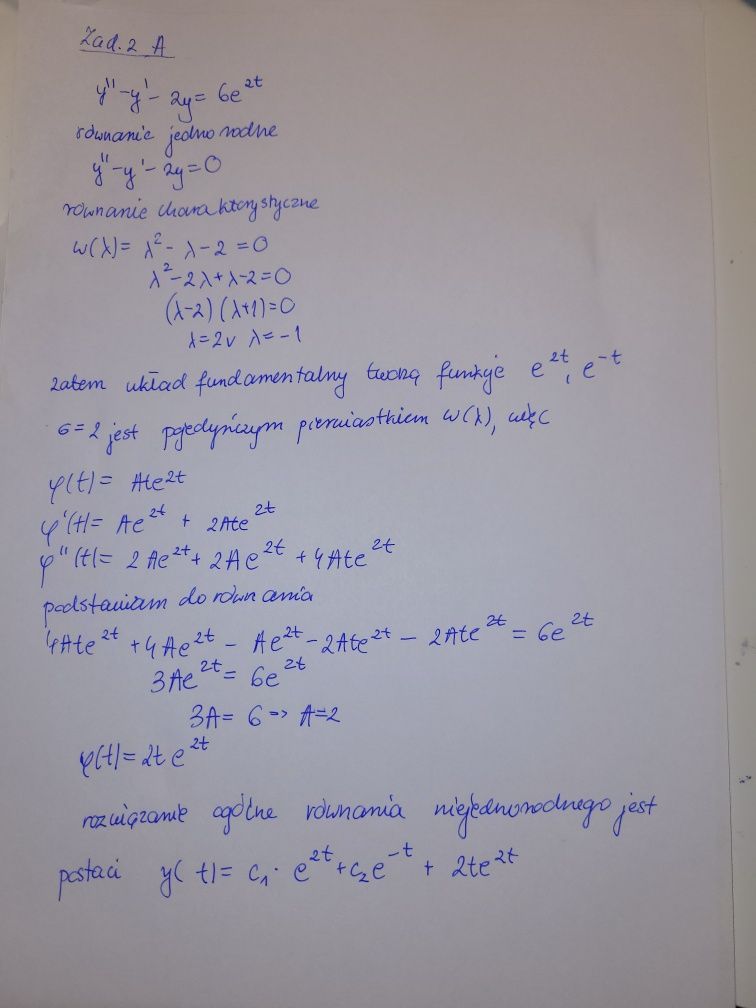 Zad. 2 A
y'' - y' - 2y = 6e^{2t}
równanie jednorodne
y'' - y' - 2y = 0
równanie charakterystyczne
w(λ) = λ² - λ - 2 = 0
λ² - 2λ + λ - 2 = 0
(λ-2)(λ+1) = 0
λ = 2 ∨ λ = -1
zatem układ fundamentalny tworzą funkcje e^{2t}, e^{-t}
σ = 2 jest pojedyńczym pierwiastkiem w(λ), więc
φ(t) = Ate^{2t}
φ'(t) = Ae^{2t} + 2Ate^{2t}
φ''(t) = 2Ae^{2t} + 2Ae^{2t} + 4Ate^{2t}
podstawiam do równania
4Ate^{2t} + 4Ae^{2t} - Ae^{2t} - 2Ate^{2t} - 2Ate^{2t} = 6e^{2t}
3Ae^{2t} = 6e^{2t}
3A = 6 => A = 2
φ(t) = 2te^{2t}
rozwiązanie ogólne równania niejednorodnego jest
postaci y(t) = C₁ · e^{2t} + C₂e^{-t} + 2te^{2t}